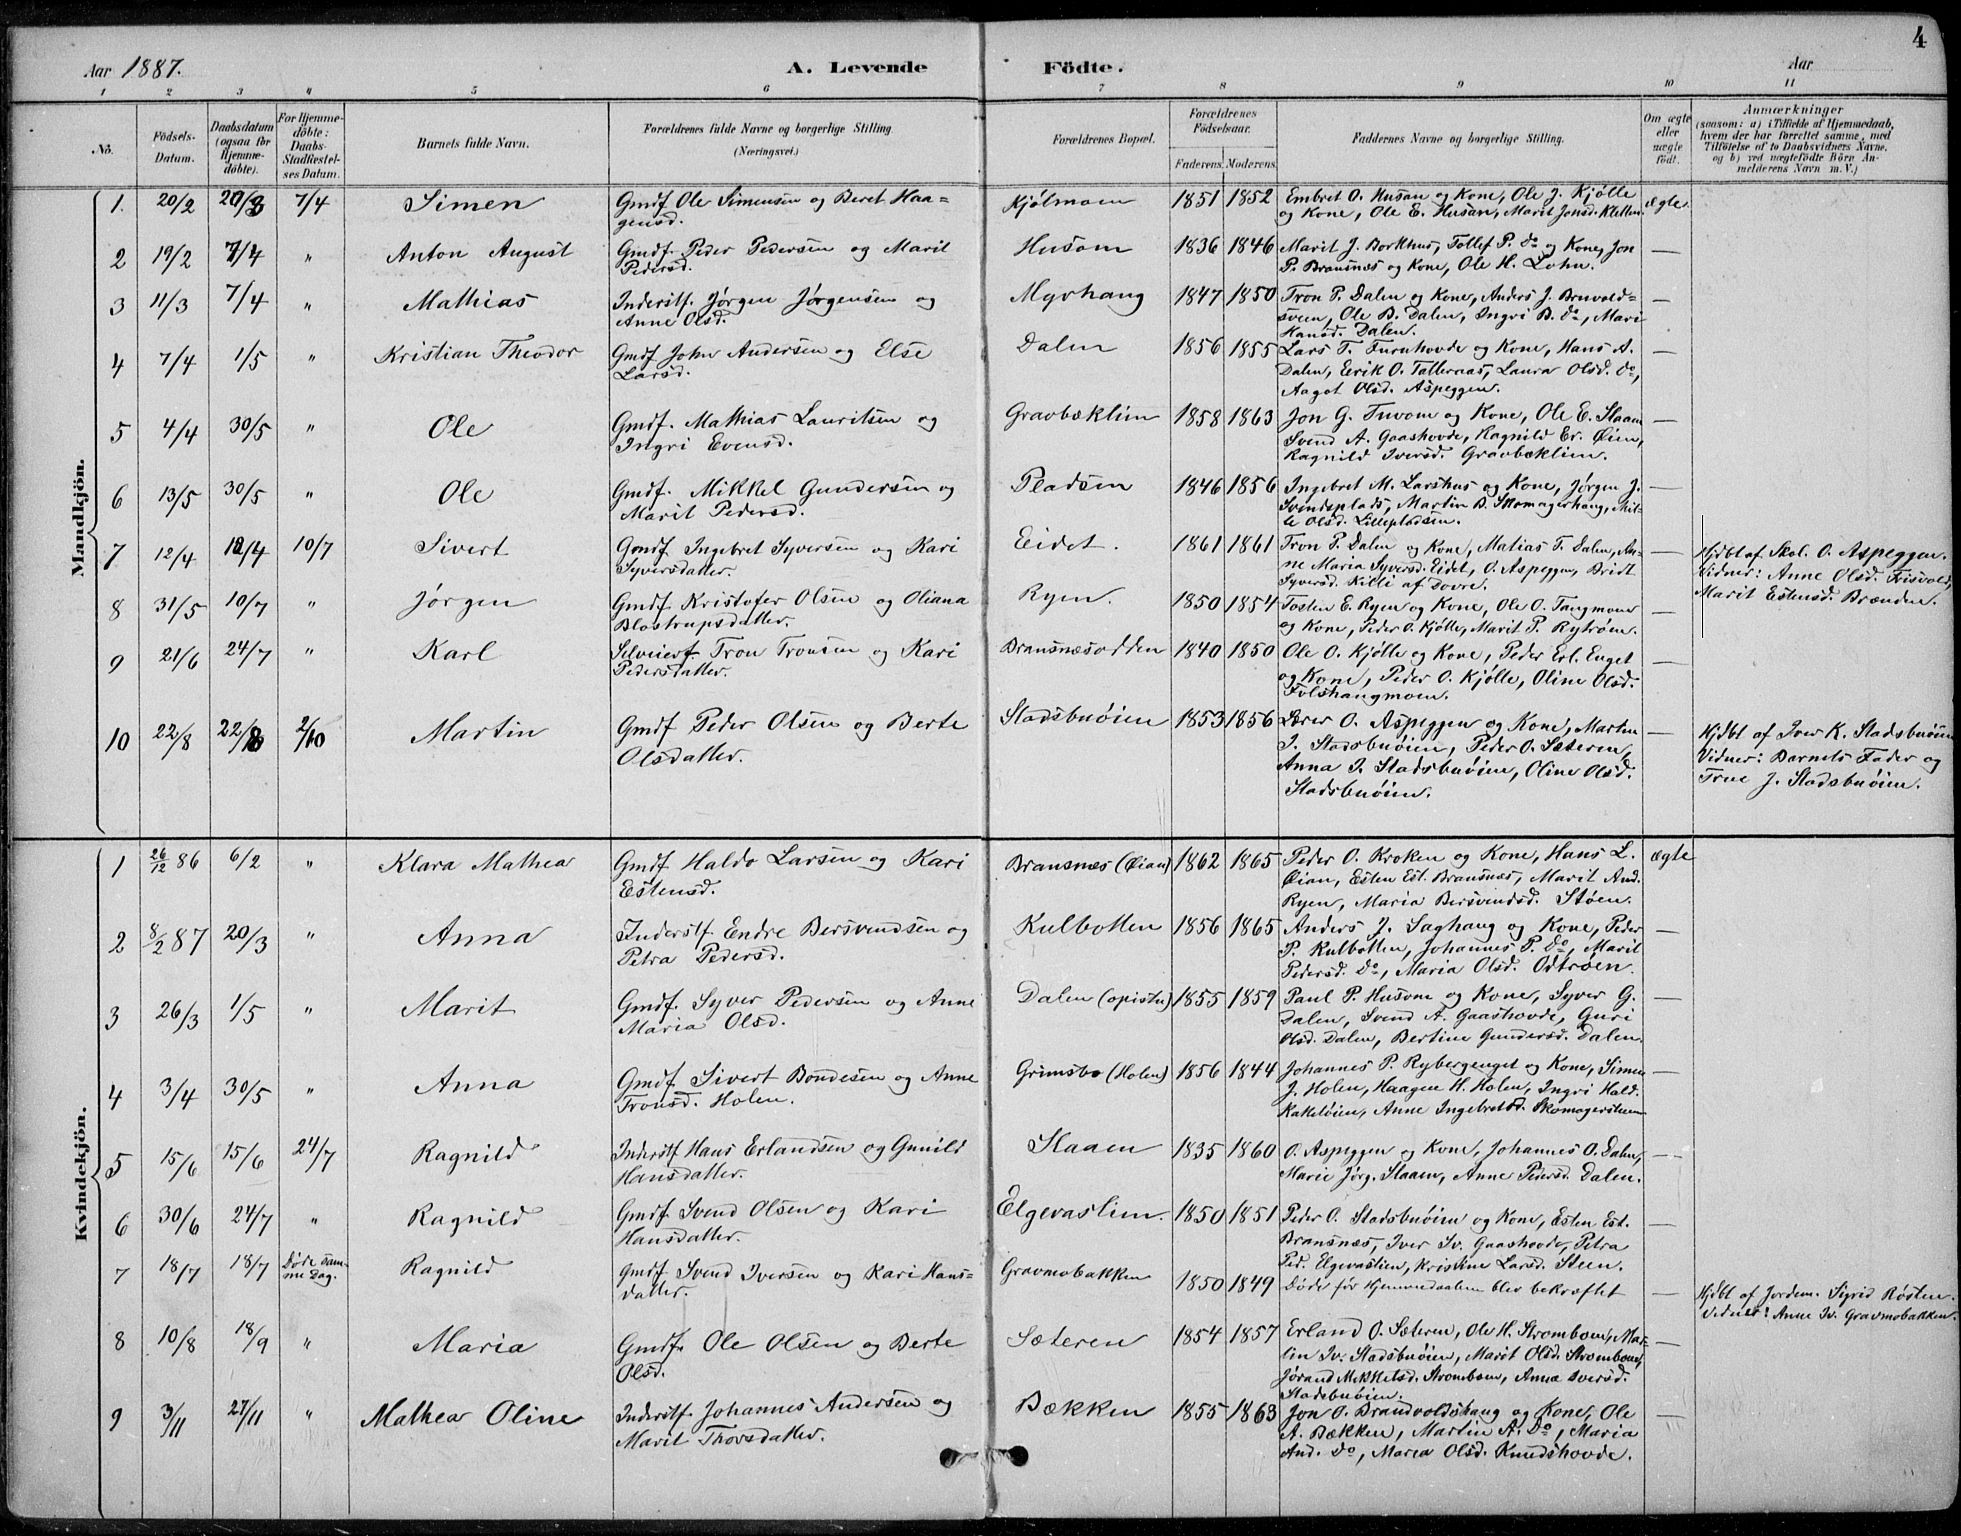 4
Aar 1887. A. Levende Födte. Aar
1 2 3 4 5 6 7 8 9 10 11
No. Födsels-Datum. Daabsdatum (ogsaa for Hjemmedöbte). For Hjemmedöbte: Daabs-Stadfæstelses Datum. Barnets fulde Navn. Forældrenes fulde Navne og borgerlige Stilling. (Næringsvei.) Forældrenes Bopæl. Forældrenes Födselsaar. Faderens. Moderens. Faddernes Navne og borgerlige Stilling. Om ægte eller uægte födt. Anmærkninger (saasom: a) i Tilfælde af Hjemmedaab, hvem der har forrettet samme, med Tilföielse af to Daabsvidners Navne, og b) ved uægtefödte Börn Anmelderens Navn m. V.)
Mandkjön.
1. 20/2 20/3 7/4 Simen Gmdf Ole Simensen og Beret Haa= Kjølmoen 1851 1852 Embret O. Husan og Kone, Ole J. Kjølle ægte
gensd. og Kone, Ole E. Husan, Marit Jonsd. Kletten
2 19/2 7/4 " Anton August Gmdf. Peder Pedersen og Marit Husom 1836 1846 Marit J. Borkhus, Tollef P. Do og Kone, Jon —
Pedersd. P. Bransnæs og Kone, Ole H. Lohn.
3 11/3 7/4 " Mathias Inderstf. Jørgen Jørgensen og Myrhaug 1847 1850 Tron P. Dalen og Kone, Anders J. Bruvold= —
Anne Olsd. sveen, Ole B. Dalen, Ingri B. Do, Mari
Hansd. Dalen.
4 7/4 1/5 " Kristian Theodor Gmdf John Andersen og Else Dalen 1856 1855 Lars T. Furuhovde og Kone, Hans A. —
Larsd. Dalen, Eirik O. Talleraas, Laura Olsd. Do,
Aagot Olsd. Aspeggen.
5 4/4 30/5 " Ole Gmdf. Mathias Lauritsen og Gravbæklien 1858 1863 Jon G. Tuvom og Kone, Ole E. Slaaen —
Ingri Evensd. Svend A. Gaashovde, Ragnild Er. Øien,
Ragnild Iversd. Gravbæklien.
6 13/5 30/5 " Ole Gmdf. Mikkel Gundersen og Pladsen 1846 1856 Ingebret M. Larshus og Kone, Jørgen J. —
Marit Pedersd. Svendsplads, Martin B. Skomagerhaug, Mil-
le Olsd. Lillepladsen.
7 12/4 12/4 10/7 Sivert Gmdf Ingebret Syversen og Kari Eidet. 1861 1861 Tron P. Dalen og Kone, Matias T. Dalen, An- — Hjdbt af Skol. O. Aspeggen.
Syversdatter. ne Maria Syversd. Eidet, O. Aspeggen, Bridt Vidner: Anne Olsd. Frisvold,
Syversd. Killi af Dovre. Marit Estensd. Brænden.
8 31/5 10/7 " Jørgen Gmdf Kristofer Olsen og Oliana Ryen. 1850 1854 Tosten E. Ryen og Kone, Ole O. Tangmoen —
Blostrupsdatter. og Kone, Peder O. Kjølle, Marit P. Rytrøen.
9 21/6 24/7 " Karl Selveierf. Tron Tronsen og Kari Bransnæsodden 1840 1850 Ole O. Kjølle og Kone, Peder Erl. Enget —
Pedersdatter. og Kone, Peder O. Kjølle, Oline Olsd.
Folshaugmoen.
10 22/8 22/8 2/10 Martin Gmdf Peder Olsen og Berte Stadsbuøien 1853 1856 Lærer O. Aspeggen og Kone, Martin — Hjdbt af Iver K. Stadsbuøien
Olsdatter. I. Stadsbuøien, Peder O. Sæteren, Vidner: Barnets Fader og
Anna I. Stadsbuøien, Oline Olsd. True J. Stadsbuøien.
Stadsbuøien.
Kvindekjön.
1 26/12 86 6/2 " Klara Mathea Gmdf Haldo Larsen og Kari Bransnæs (Øian) 1862 1865 Peder O. Kroken og Kone, Hans L. ægte
Estensd. Øian, Esten Est. Bransnæs, Marit And.
Ryen, Maria Bersvendsd. Støen.
2 8/2 87 20/3 " Anna Inderstf. Endre Bersvendsen og Kulbotten 1856 1865 Anders J. Saghaug og Kone, Peder —
Petra Pedersd. P. Kulbotten, Johannes P. Do, Marit
Pedersd. Do, Maria Olsd. Odtrøen.
3 26/3 1/5 " Marit Gmdf. Syver Pedersen og Anne Dalen (opistu) 1855 1859 Paul P. Husom og Kone, Syver G. —
Maria Olsd. Dalen, Svend A. Gaashovde, Guri
Olsd. Dalen, Bertine Gundersd. Dalen.
4 3/4 30/5 " Anna Gmdf Sivert Bondesen og Anne Grimsbo (Holen) 1856 1844 Johannes P. Rybergenget og Kone, Simen —
Tronsd. Holen. J. Holen, Haagen H. Holen, Ingri Hald.
Kakeløien, Anne Ingebretsd. Skomagersteen
5 15/6 15/6 24/7 Ragnild Inderstf Hans Erlandsen og Gunild Slaaen 1835 1860 O. Aspeggen og Kone, Johannes O. Dalen, —
Hansdatter. Marie Jørg. Slaaen, Anne Pedersd. Dalen.
6 30/6 24/7 " Ragnild Gmdf. Svend Olsen og Kari Elgevaslien. 1850 1851 Peder O. Stadsbuøien og Kone, Esten Est. —
Hansdatter. Bransnæs, Iver Iv. Gaashovde, Petra
Ped. Elgevaslien, Kristine Larsd. Steen.
7 18/7 18/7 Døde sam-me Dag. Ragnild Gmdf Svend Iversen og Kari Hans= Gravmobakken 1850 1849 Døde før Hjemmedaaben blev bekræftet — Hjdbt af Jordem. Sigrid Røsten.
datter. Vidner: Anne Iv. Gravmobakken.
8 10/8 18/9 " Maria Gmdf. Ole Olsen og Berte Sæteren 1854 1857 Erland O. Sæteren, Ole H. Strømboen, Mar- —
Olsd. tin Iv. Stadsbuøien, Marit Olsd. Strømboen,
Jørand Mikkelsd. Strømboen, Anna Iversd.
Stadsbuøien.
9 3/11 27/11 " Mathea Oline Inderstf. Johannes Andersen og Bækken 1855 1863 Jon O. Brandvoldshaug og Kone, Ole —
Marit Thorsdatter. A. Bækken, Martin A. Do, Maria
And. Do, Maria Olsd. Knudshovde.